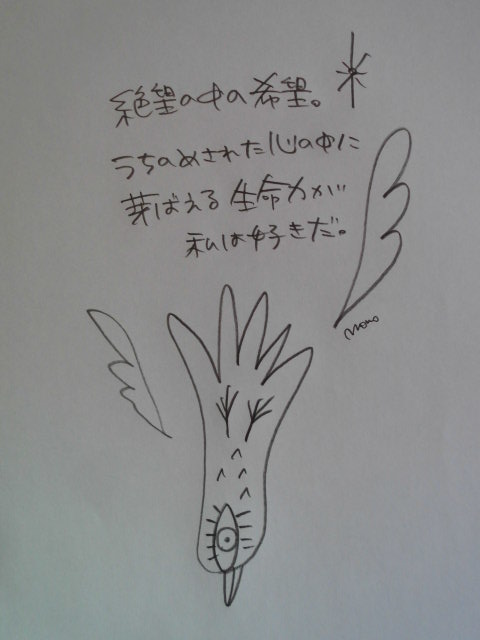 絶望の中の希望。
うちのめされた心の中に
芽ばえる生命力が
私は好きだ。
momo